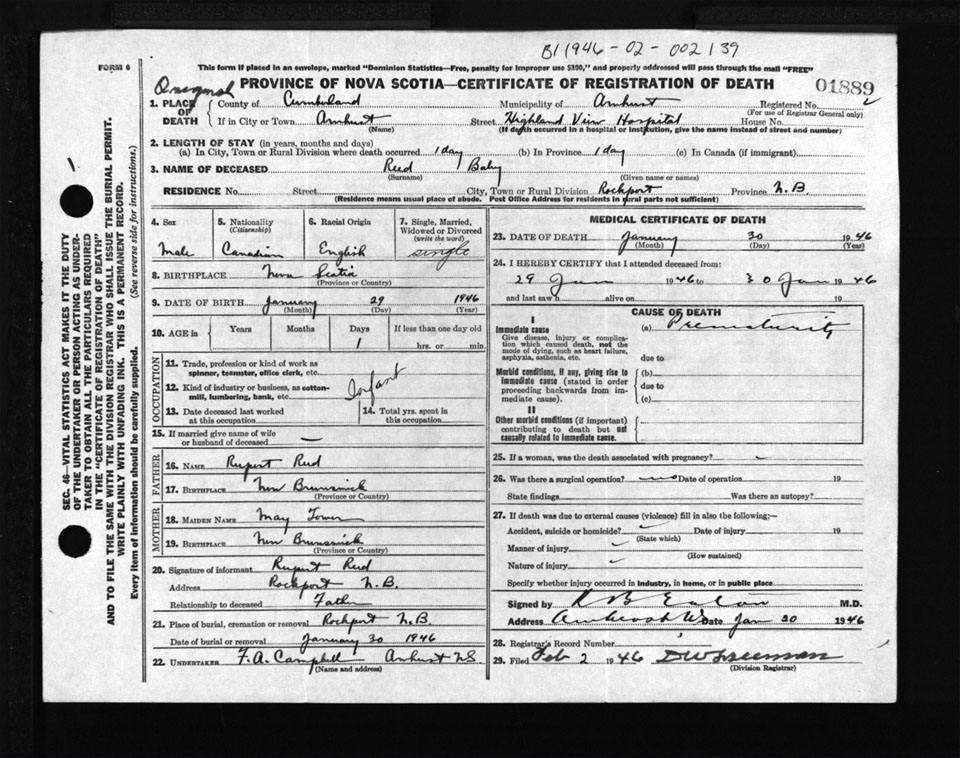 B11946-02-002139
FORM 6
This form if placed in an envelope, marked "Dominion Statistics—Free, penalty for improper use $300," and properly addressed will pass through the mail "FREE"
Original
PROVINCE OF NOVA SCOTIA—CERTIFICATE OF REGISTRATION OF DEATH
01889
1. PLACE OF DEATH { County of Cumberland Municipality of Amherst Registered No.
(For use of Registrar General only)
If in City or Town Amherst Street Highland View Hospital House No.
(Name) (If death occurred in a hospital or institution, give the name instead of street and number)
2. LENGTH OF STAY (in years, months and days)
(a) In City, Town or Rural Division where death occurred 1 day (b) In Province 1 day (c) In Canada (if immigrant)
3. NAME OF DECEASED Reid Baby
(Surname) (Given name or names)
RESIDENCE No. Street City, Town or Rural Division Rockport Province N.B
(Residence means usual place of abode. Post Office Address for residents in rural parts not sufficient)
4. Sex 5. Nationality (Citizenship) 6. Racial Origin 7. Single, Married, Widowed or Divorced (write the word)
Male Canadian English single
8. BIRTHPLACE Nova Scotia
(Province or Country)
9. DATE OF BIRTH January 29 1946
(Month) (Day) (Year)
10. AGE in { Years Months Days If less than one day old
1 hrs. or min.
OCCUPATION
11. Trade, profession or kind of work as spinner, teamster, office clerk, etc.
12. Kind of industry or business, as cotton-mill, lumbering, bank, etc.
Infant
13. Date deceased last worked at this occupation
14. Total yrs. spent in this occupation
15. If married give name of wife or husband of deceased —
FATHER
16. NAME Rupert Reid
17. BIRTHPLACE New Brunswick
(Province or Country)
MOTHER
18. MAIDEN NAME May Tower
19. BIRTHPLACE New Brunswick
(Province or Country)
20. Signature of informant Rupert Reid
Address Rockport N.B.
Relationship to deceased Father
21. Place of burial, cremation or removal Rockport N.B.
Date of burial or removal January 30 1946
22. UNDERTAKER F.A. Campbell Amherst NS
(Name and address)
MEDICAL CERTIFICATE OF DEATH
23. DATE OF DEATH January 30 1946
(Month) (Day) (Year)
24. I HEREBY CERTIFY that I attended deceased from:
29 Jan 1946 to 30 Jan 1946
and last saw h alive on 19
CAUSE OF DEATH
I
Immediate cause (a) Prematurity
Give disease, injury or complication which caused death, not the mode of dying, such as heart failure, asphyxia, asthenia, etc.
due to
Morbid conditions, if any, giving rise to immediate cause (stated in order proceeding backwards from immediate cause).
(b)
due to
(c)
II
Other morbid conditions (if important) contributing to death but not causally related to immediate cause.
25. If a woman, was the death associated with pregnancy?
26. Was there a surgical operation? no Date of operation 19
State findings Was there an autopsy?
27. If death was due to external causes (violence) fill in also the following:—
Accident, suicide or homicide? Date of injury 19
(State which)
Manner of injury
(How sustained)
Nature of injury
Specify whether injury occurred in industry, in home, or in public place
Signed by M.D.
Address Date Jan 30 1946
28. Registrar's Record Number
29. Filed Feb 2 1946
(Division Registrar)
SEC. 46—VITAL STATISTICS ACT MAKES IT THE DUTY
OF THE UNDERTAKER OR PERSON ACTING AS UNDER-
TAKER TO OBTAIN ALL THE PARTICULARS REQUIRED
IN THE "CERTIFICATE OF REGISTRATION OF DEATH"
AND TO FILE THE SAME WITH THE DIVISION REGISTRAR WHO SHALL ISSUE THE BURIAL PERMIT.
WRITE PLAINLY WITH UNFADING INK. THIS IS A PERMANENT RECORD.
Every item of information should be carefully supplied. (See reverse side for instructions.)